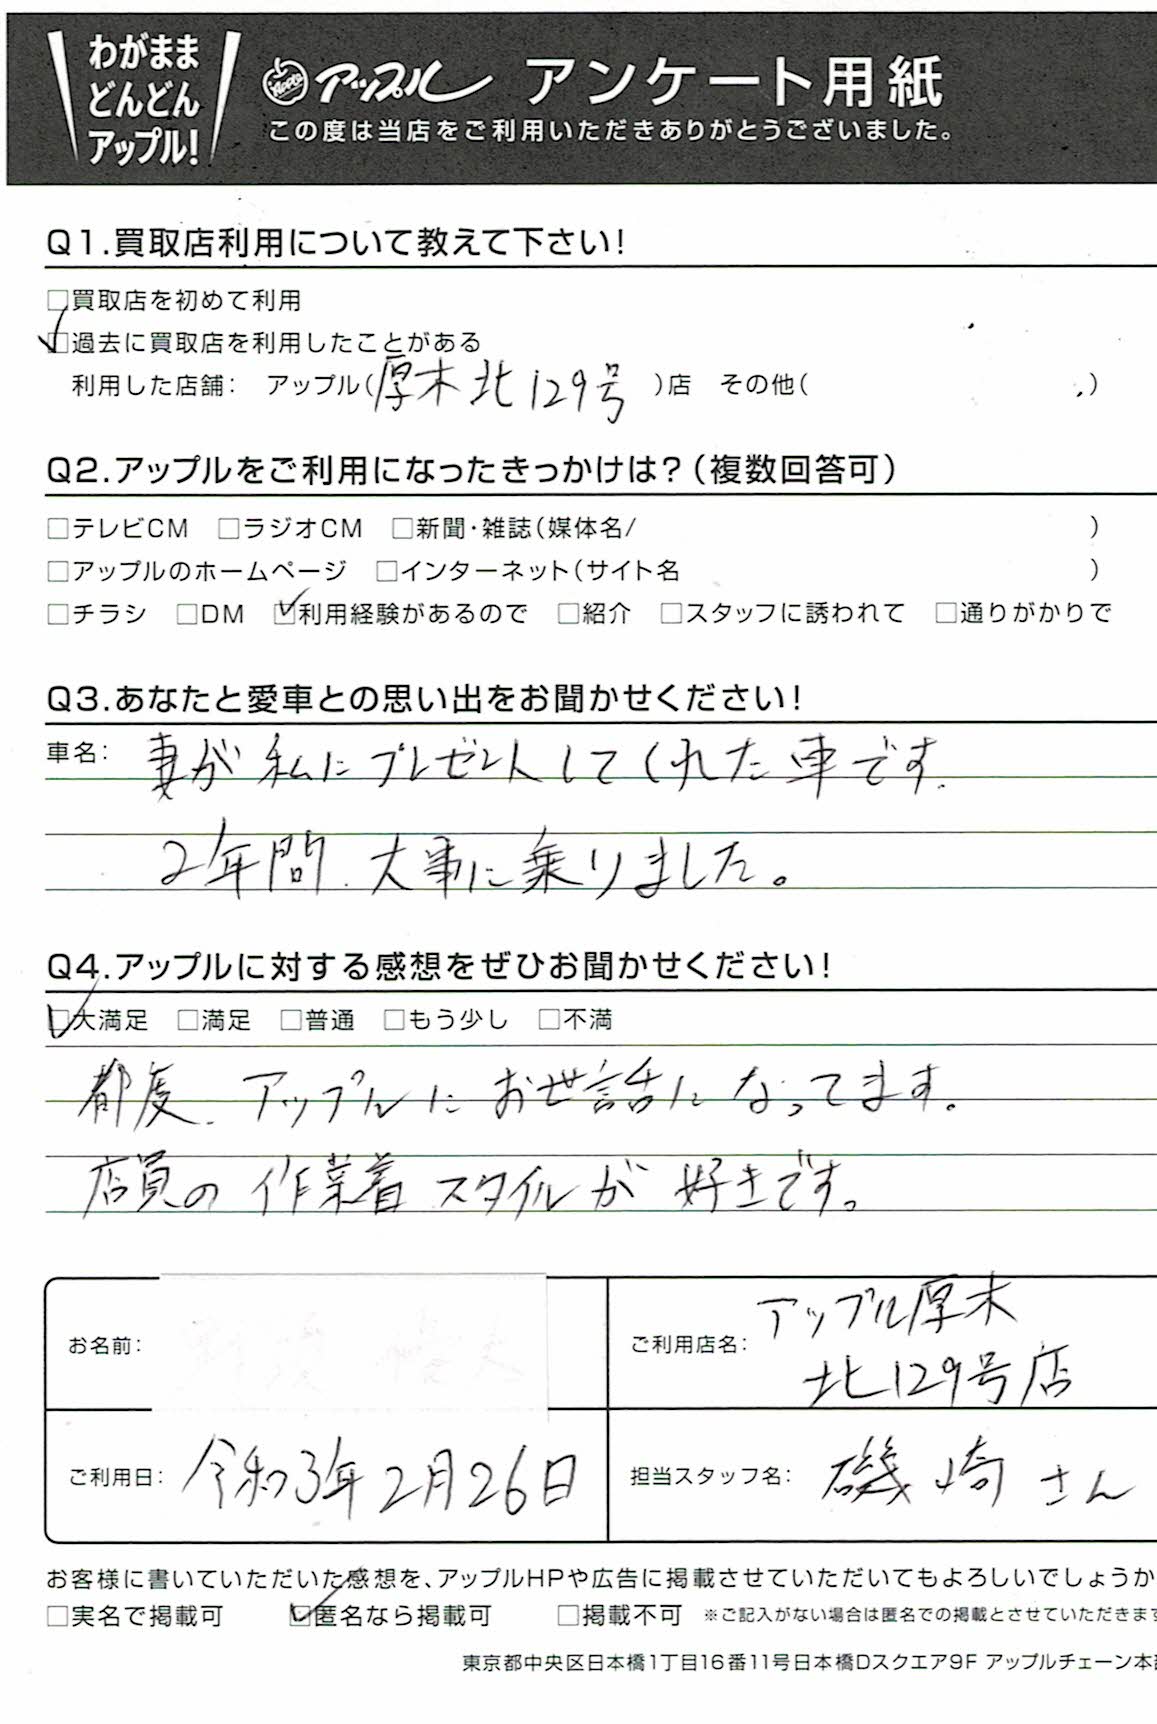 わがまま
どんどん
アップル!
Apple アップル アンケート用紙
この度は当店をご利用いただきありがとうございました。
Q1.買取店利用について教えて下さい!
□買取店を初めて利用
☑過去に買取店を利用したことがある
利用した店舗: アップル(厚木北129号)店 その他( )
Q2.アップルをご利用になったきっかけは?(複数回答可)
□テレビCM □ラジオCM □新聞・雑誌(媒体名/ )
□アップルのホームページ □インターネット(サイト名 )
□チラシ □DM ☑利用経験があるので □紹介 □スタッフに誘われて □通りがかりで
Q3.あなたと愛車との思い出をお聞かせください!
車名: 妻が私にプレゼントしてくれた車です.
2年間.大事に乗りました。
Q4.アップルに対する感想をぜひお聞かせください!
☑大満足 □満足 □普通 □もう少し □不満
都度.アップルにお世話になってます。
店員の作業着スタイルが好きです。
お名前:
ご利用店名: アップル厚木
北129号店
ご利用日: 令和3年2月26日
担当スタッフ名: 磯崎さん
お客様に書いていただいた感想を、アップルHPや広告に掲載させていただいてもよろしいでしょうか
□実名で掲載可 ☑匿名なら掲載可 □掲載不可 ※ご記入がない場合は匿名での掲載とさせていただきます
東京都中央区日本橋1丁目16番11号日本橋Dスクエア9F アップルチェーン本部